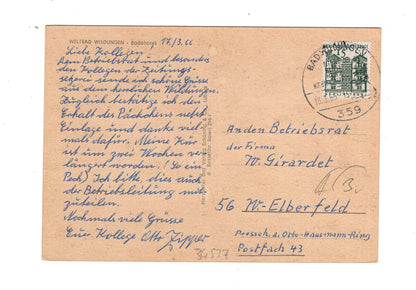 WELTBAD WILDUNGEN - Badehotel
18/3.66
Liebe Kollegen
Dem Betriebsrat und besonders
den Kollegen der Zeitungs-
setzerei sende ich schöne Grüsse
aus dem herrlichen Wildungen.
Zugleich bestätige ich den
Erhalt des Päckchens nebst
Einlage und danke viel
mals dafür. Meine Kur
ist um zwei Wochen ver-
längert worden! (So ein
Pech) Ich bitte dies auch
der Betriebsleitung mit-
zuteilen.
Nochmals viele Grüsse
Euer Kollege Otto Zipper
34577
BAD WILDUNGEN
359
15
An den Betriebsrat
der Firma
W. Girardet
56 W-Elberfeld
Pressch. d. Otto-Hausmann-Ring
Postfach 43